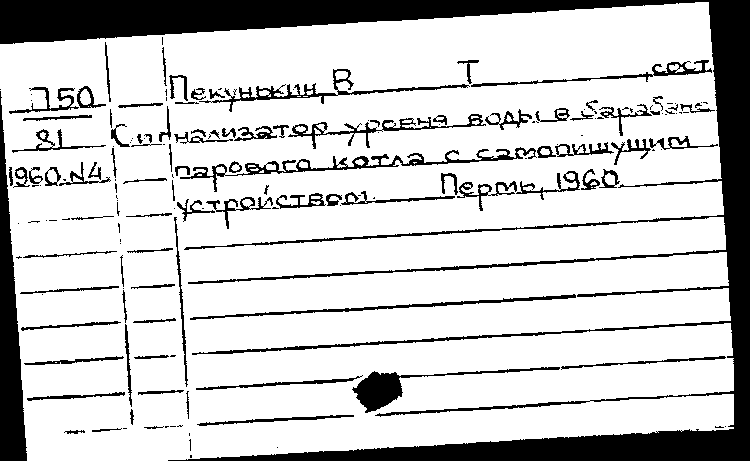 П50 Пекунькин, В Т , сост
81 Сигнализатор уровня воды в барабане
1960.N4 парового котла с самопишущим
устройством. Пермь, 1960